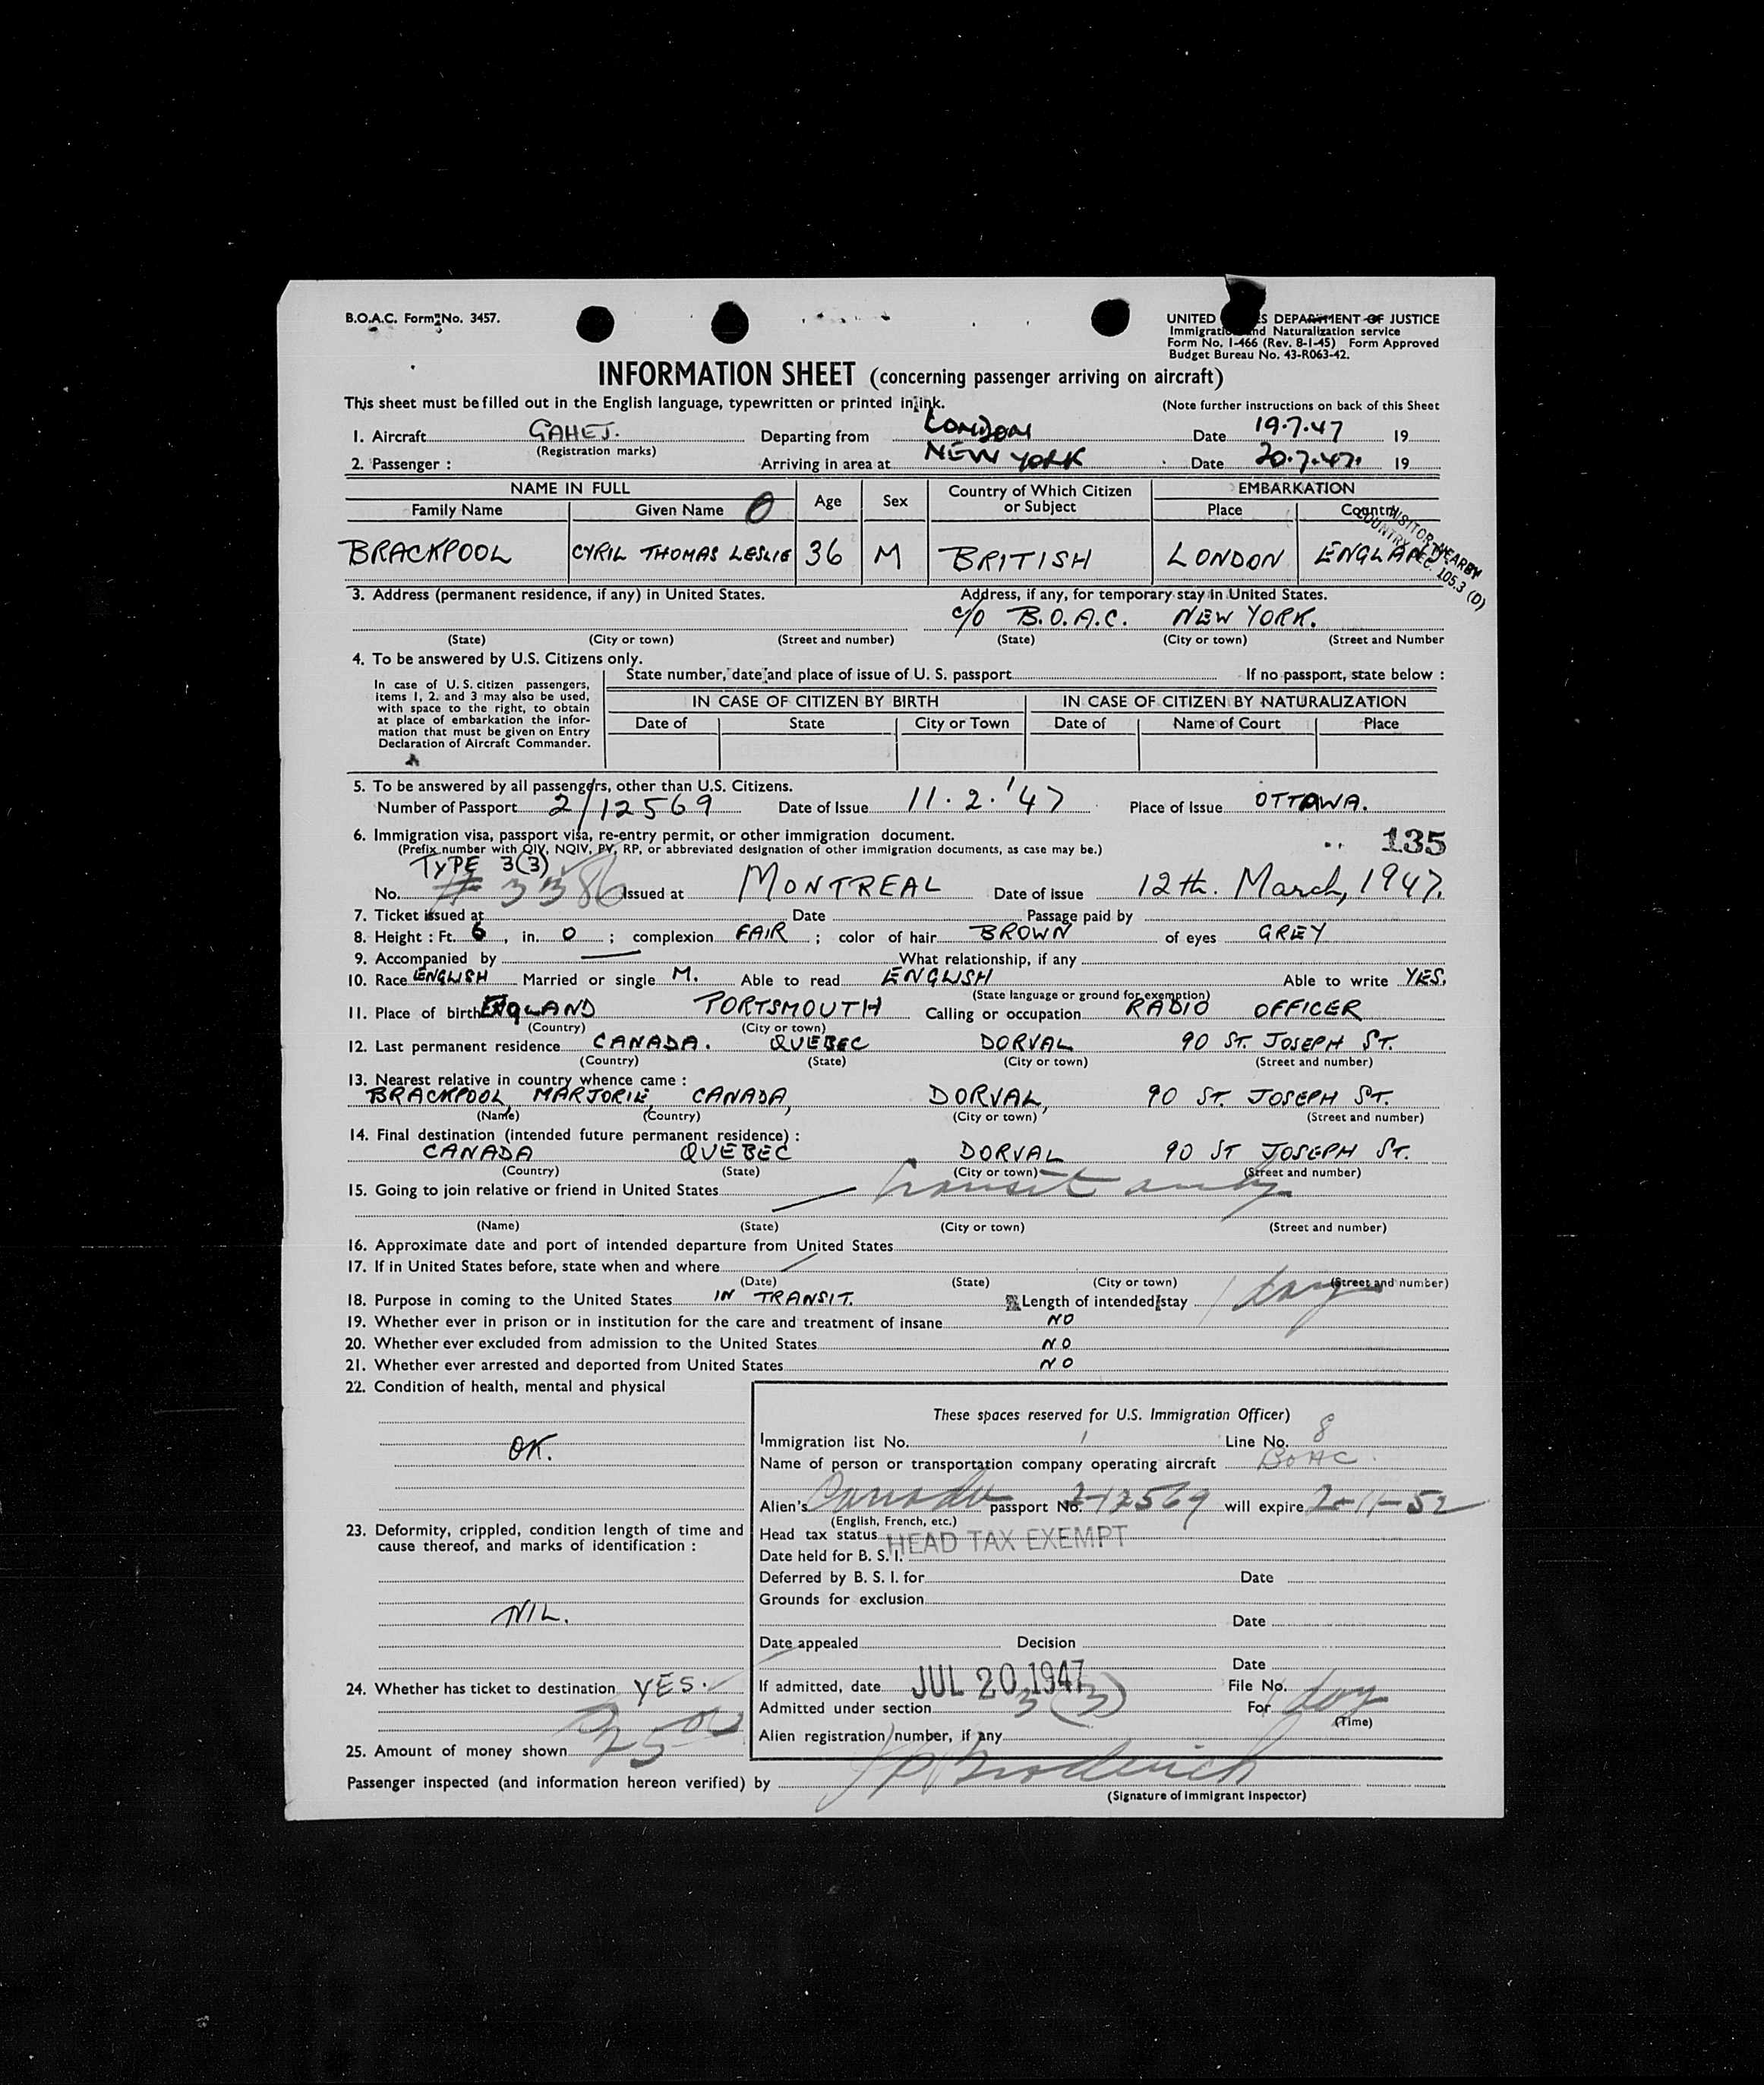 B.O.A.C. Form No. 3457.
UNITED S DEPARTMENT OF JUSTICE
Immigration and Naturalization service
Form No. I-466 (Rev. 8-1-45) Form Approved
Budget Bureau No. 43-R063-42.
INFORMATION SHEET (concerning passenger arriving on aircraft)
This sheet must be filled out in the English language, typewritten or printed in ink.
(Note further instructions on back of this Sheet
1. Aircraft GAHEJ. Departing from LONDON Date 19.7.47 19
(Registration marks)
2. Passenger : Arriving in area at NEW YORK Date 20.7.47. 19
NAME IN FULL Age Sex Country of Which Citizen or Subject EMBARKATION
Family Name Given Name O Place Country
VISITOR NEARBY
COUNTRY SEC. 105.3 (D)
BRACKPOOL CYRIL THOMAS LESLIE 36 M BRITISH LONDON ENGLAND.
3. Address (permanent residence, if any) in United States. Address, if any, for temporary stay in United States.
c/o B.O.A.C. NEW YORK.
(State) (City or town) (Street and number) (State) (City or town) (Street and Number
4. To be answered by U.S. Citizens only.
State number, date and place of issue of U. S. passport If no passport, state below :
In case of U. S. citizen passengers,
items 1, 2. and 3 may also be used,
with space to the right, to obtain
at place of embarkation the infor-
mation that must be given on Entry
Declaration of Aircraft Commander.
IN CASE OF CITIZEN BY BIRTH IN CASE OF CITIZEN BY NATURALIZATION
Date of State City or Town Date of Name of Court Place
5. To be answered by all passengers, other than U.S. Citizens.
Number of Passport 2/12569 Date of Issue 11.2.'47 Place of Issue OTTAWA.
6. Immigration visa, passport visa, re-entry permit, or other immigration document.
135
(Prefix number with QIV, NQIV, PV, RP, or abbreviated designation of other immigration documents, as case may be.)
TYPE 3(3)
No. # 3386 Issued at MONTREAL Date of issue 12th. March, 1947.
7. Ticket issued at Date Passage paid by
8. Height : Ft. 6, in. 0 ; complexion FAIR ; color of hair BROWN of eyes GREY
9. Accompanied by What relationship, if any
10. Race ENGLISH Married or single M. Able to read ENGLISH Able to write YES.
(State language or ground for exemption)
11. Place of birth ENGLAND PORTSMOUTH Calling or occupation RADIO OFFICER
(Country) (City or town)
12. Last permanent residence CANADA. QUEBEC DORVAL 90 ST. JOSEPH ST.
(Country) (State) (City or town) (Street and number)
13. Nearest relative in country whence came :
BRACKPOOL, MARJORIE, CANADA, DORVAL, 90 ST. JOSEPH ST.
(Name) (Country) (City or town) (Street and number)
14. Final destination (intended future permanent residence) :
CANADA QUEBEC DORVAL 90 ST JOSEPH ST.
(Country) (State) (City or town) (Street and number)
15. Going to join relative or friend in United States transit only
(Name) (State) (City or town) (Street and number)
16. Approximate date and port of intended departure from United States
17. If in United States before, state when and where
(Date) (State) (City or town) (Street and number)
18. Purpose in coming to the United States IN TRANSIT. Length of intended stay 1 day
19. Whether ever in prison or in institution for the care and treatment of insane NO
20. Whether ever excluded from admission to the United States NO
21. Whether ever arrested and deported from United States NO
22. Condition of health, mental and physical
OK.
These spaces reserved for U.S. Immigration Officer)
Immigration list No. 1 Line No. 8
Name of person or transportation company operating aircraft BOAC
Alien's Canada passport No. 2-12569 will expire 2-11-52
(English, French, etc.)
23. Deformity, crippled, condition length of time and
cause thereof, and marks of identification :
NIL.
Head tax status HEAD TAX EXEMPT
Date held for B. S. I.
Deferred by B. S. I. for Date
Grounds for exclusion
Date
Date appealed Decision
Date
24. Whether has ticket to destination YES.
If admitted, date JUL 20 1947 File No.
Admitted under section 3 (3) For 1 day
(Time)
Alien registration number, if any
25. Amount of money shown 25 00
Passenger inspected (and information hereon verified) by Broderick
(Signature of Immigrant Inspector)